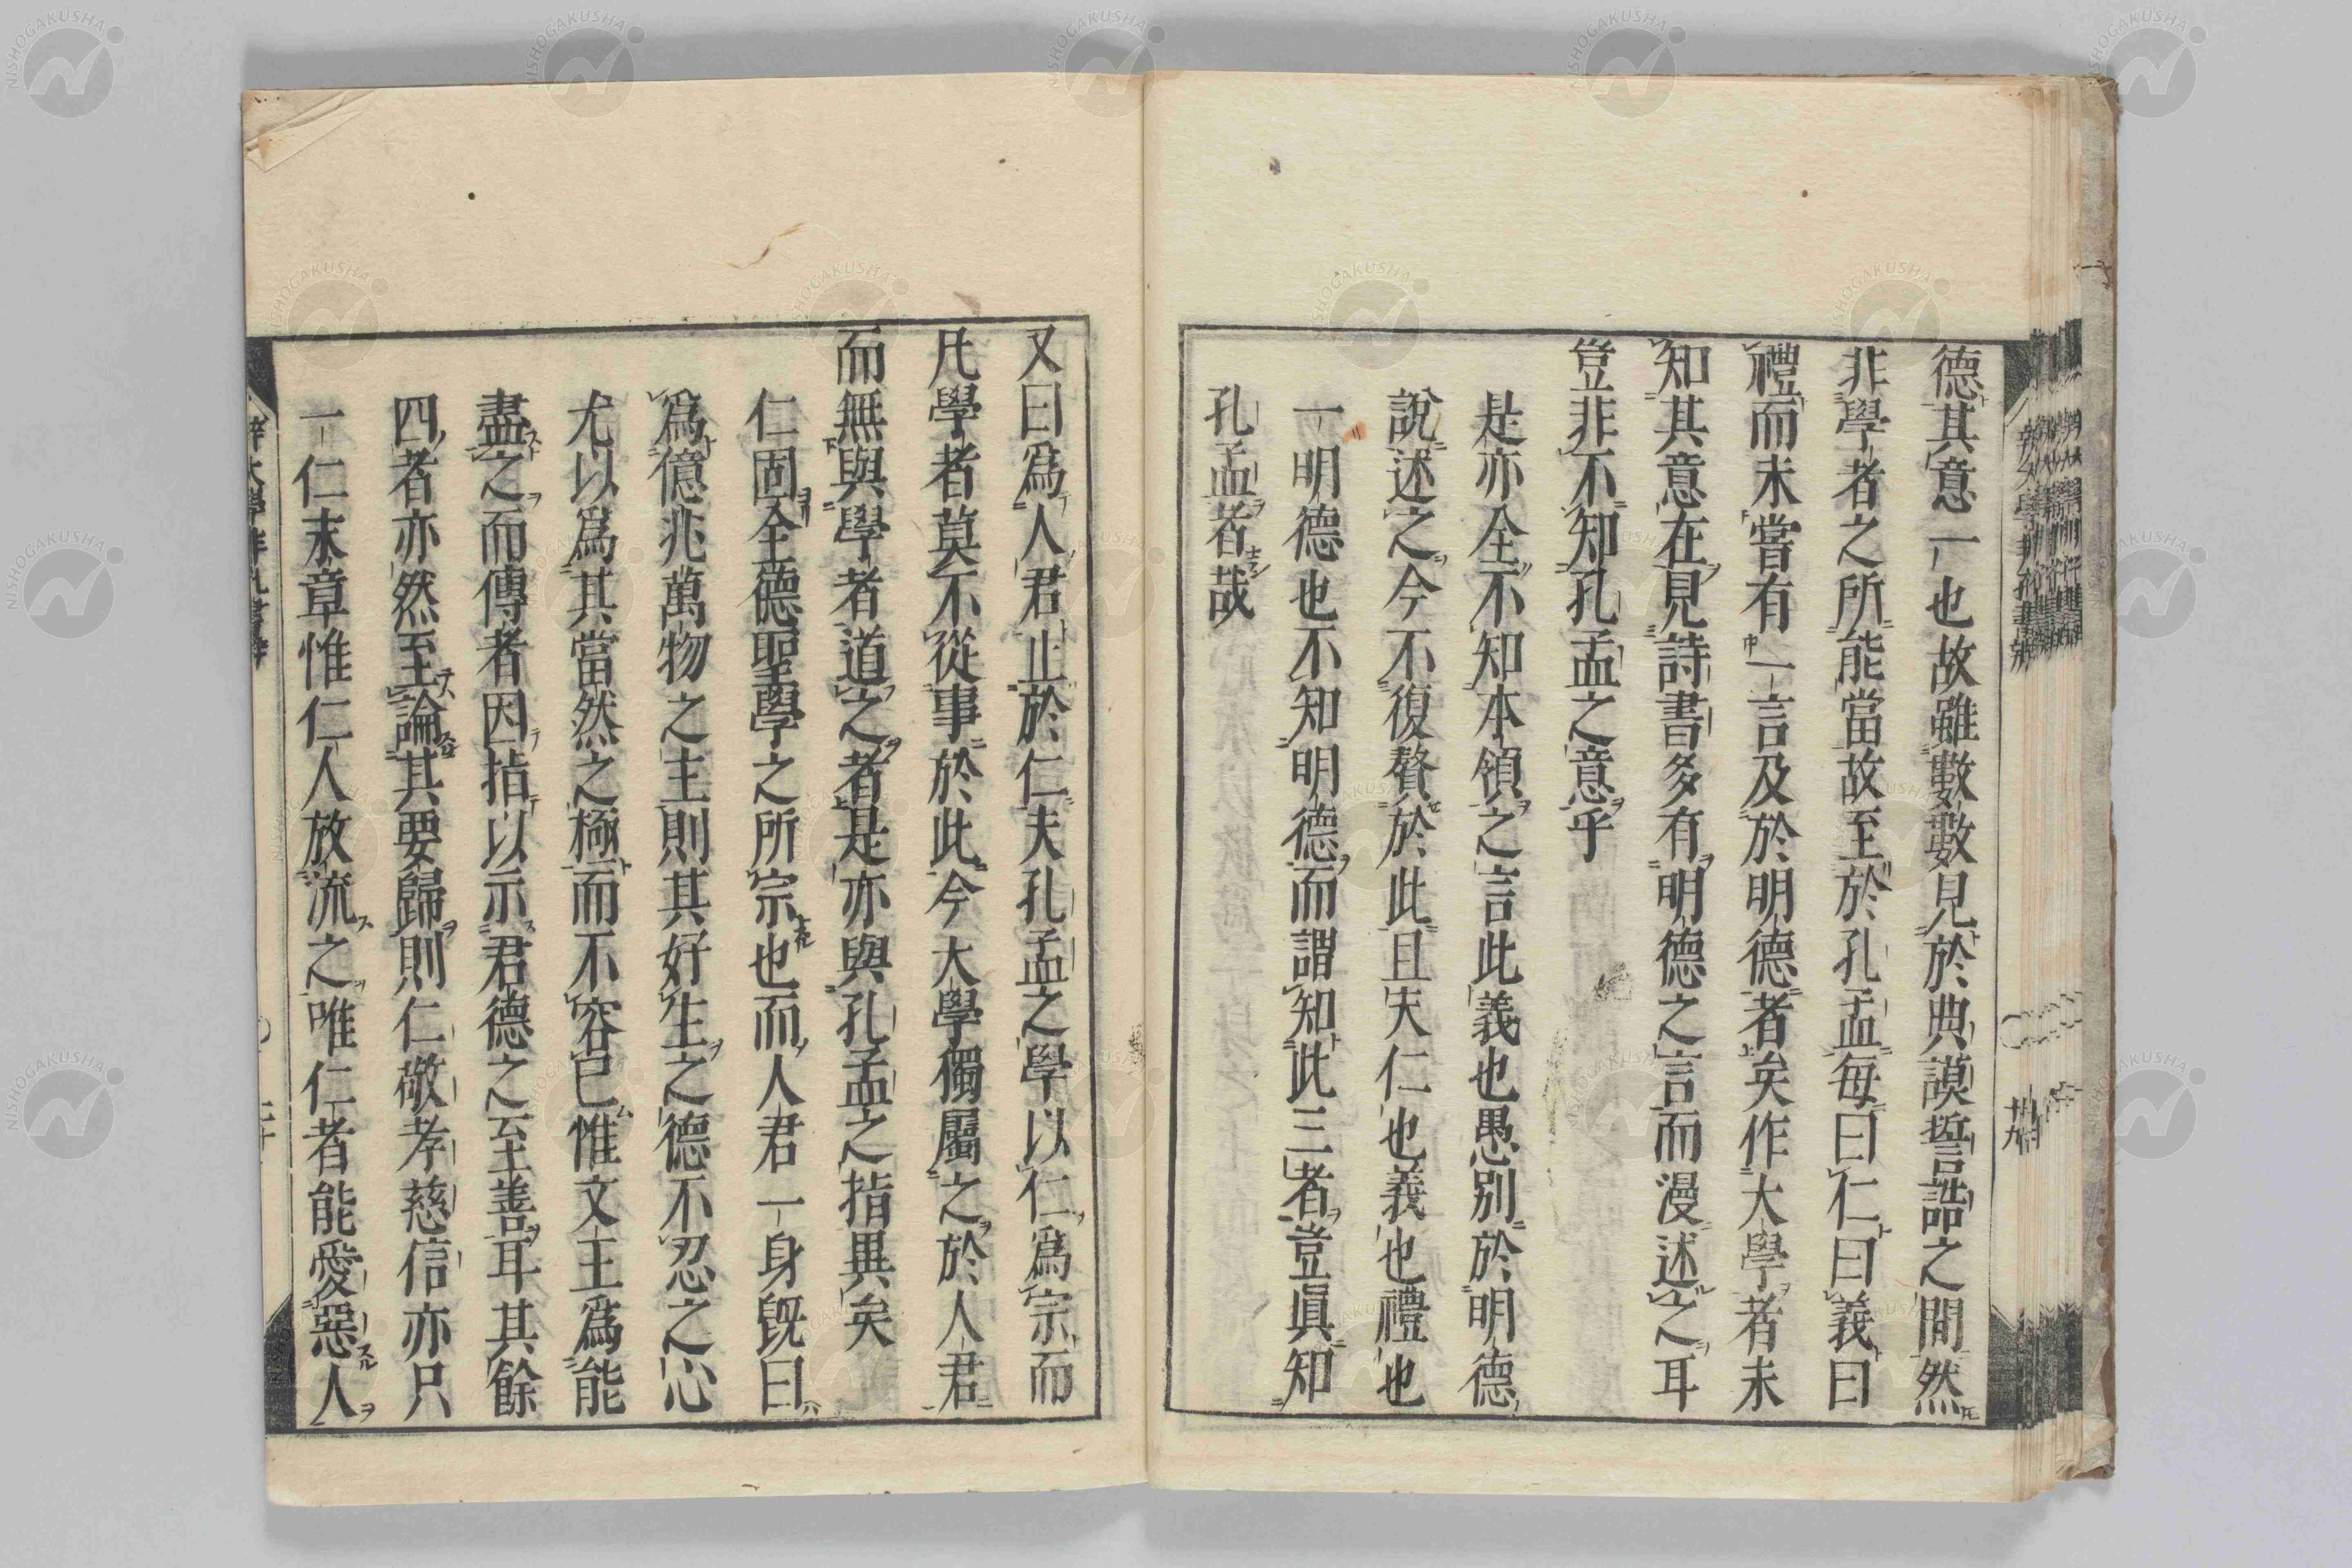 德其意一也故雖數數見於典謨誓誥之間然
非學者之所能當故至於孔孟每曰仁曰義曰
禮而未嘗有一言及於明德者矣作大學者未
知其意在見詩書多有明德之言而漫述之耳
豈非不知孔孟之意乎
是亦全不知本領之言此義也愚別於明德
說述之今不復贅於此且夫仁也義也禮也
一明德也不知明德而謂知此三者豈眞知
孔孟者哉
又曰爲人君止於仁夫孔孟之學以仁爲宗而
凡學者莫不從事於此今大學獨屬之於人君
而無與學者道之者是亦與孔孟之指異矣
仁固全德聖學之所宗也而人君一身旣曰
爲億兆萬物之主則其好生之德不忍之心
尤以爲其當然之極而不容已惟文王爲能
盡之而傳者因指以示君德之至善耳其餘
四者亦然至論其要歸則仁敬孝慈信亦只
一仁末章惟仁人放流之唯仁者能愛惡人
辨大學非孔書辨
十九
二十
NISHOGAKUSHA